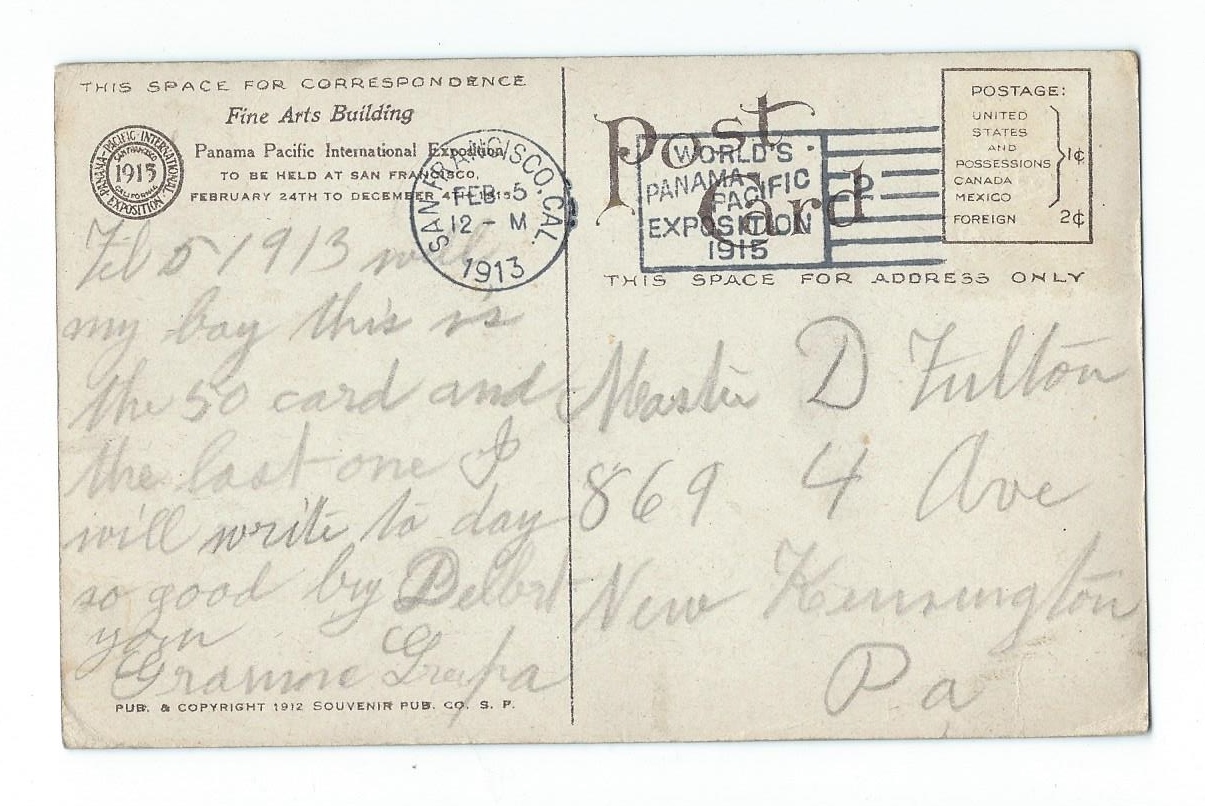 THIS SPACE FOR CORRESPONDENCE
Fine Arts Building
PANAMA-PACIFIC-INTERNATIONAL EXPOSITION
SAN FRANCISCO
1915
CALIFORNIA
Panama Pacific International Exposition
TO BE HELD AT SAN FRANCISCO,
FEBRUARY 24TH TO DECEMBER 4TH 1915
SAN FRANCISCO, CAL.
FEB 5
12 - M
1913
Feb 5 1913 well
my boy this is
the 50 card and
the last one I
will write to day
so good by Delbert
your
Gramme Grapa
PUB. & COPYRIGHT 1912 SOUVENIR PUB. CO. S. F.
Post Card
WORLD'S
PANAMA
PACIFIC
EXPOSITION
1915
POSTAGE:
UNITED
STATES
AND
POSSESSIONS 1¢
CANADA
MEXICO
FOREIGN 2¢
THIS SPACE FOR ADDRESS ONLY
Master D Fulton
869 4 Ave
New Kensington
Pa